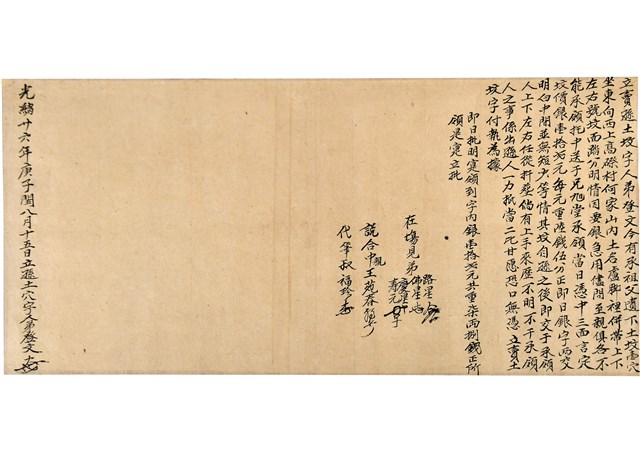 立賣遜土坟字人弟啓文今有承祖父遺下坟壹穴
坐東向西上高磜村何家山內土名盧脚裡併帶上下
左右號坟西踏分明情因要銀急用儘問至親俱各不
能承領托中送于兄旭堂承領當日憑中三面言定
坟價銀壹拾弍元每元重陸錢伍分正即日銀字兩交
明白中間並無短少等情其坟自遜之後即交于承領
人上下左右任從扦𦵏倘有上手來歷不明不干承領
人之事係出遜人一力抵當二比甘愿恐口無憑立賣土
坟字付執為據
即日批明寔領到字內銀壹拾弍元共重柒両捌錢正所
領是寔立批
在塲見弟 路星
佛星
壽元
說合中親王茂春
代筆叔福珍
光緒廿六年庚子閏八月十五日立遜土穴字人弟啓文